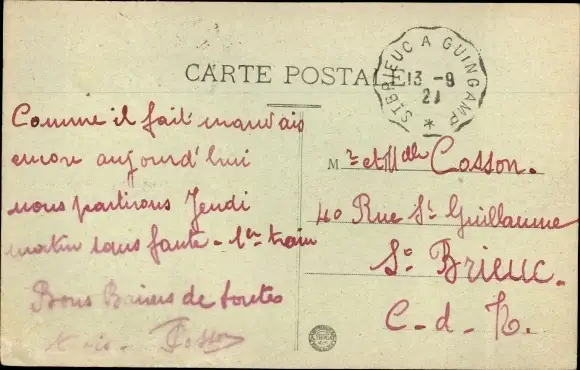 CARTE POSTALE
ST BRIEUC A GUINGAMP
13 - 9
21
*
Comme il fait mauvais
encore aujourd'hui
nous partirons Jeudi
matin sans faute - 1er train
Bons Baisers de toutes
trois - Cosson
Mr et Mlle Cosson.
40 Rue St Guillaume
St Brieuc.
C-d-N.